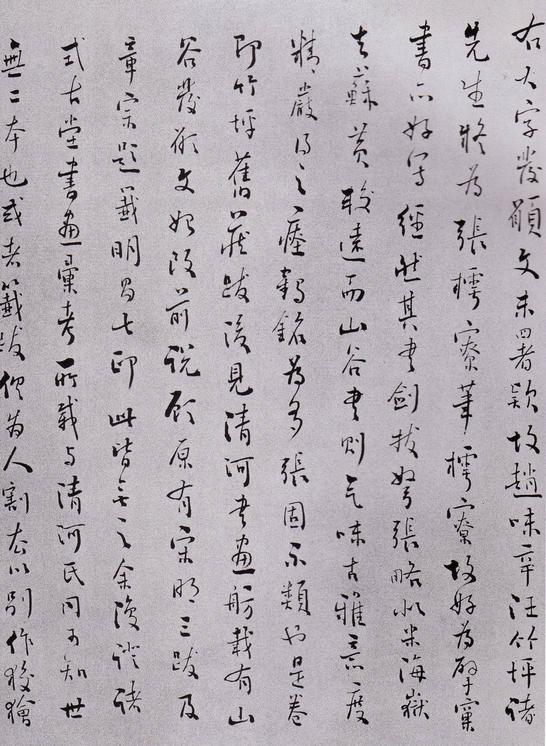 右大字發願文未署款故趙味辛汪竹坪諸
先生皆為張樗寮筆樗寮故好為擘窠
書亦好寫經然其書劍拔弩張略似米海嶽
去蘇黃較遠而山谷書則氣味古雅意度
精嚴得之瘞鶴銘為多張固不類也是卷
即竹坪舊藏跋後見清河書畫舫載有山
谷發願文始改前說顧原有宋明三跋及
章宗題籤明昌七印此皆無之余復證諸
式古堂書畫彙考所載與清河氏同可知世
無二本也或者籤跋俱為人割去以別作狡獪